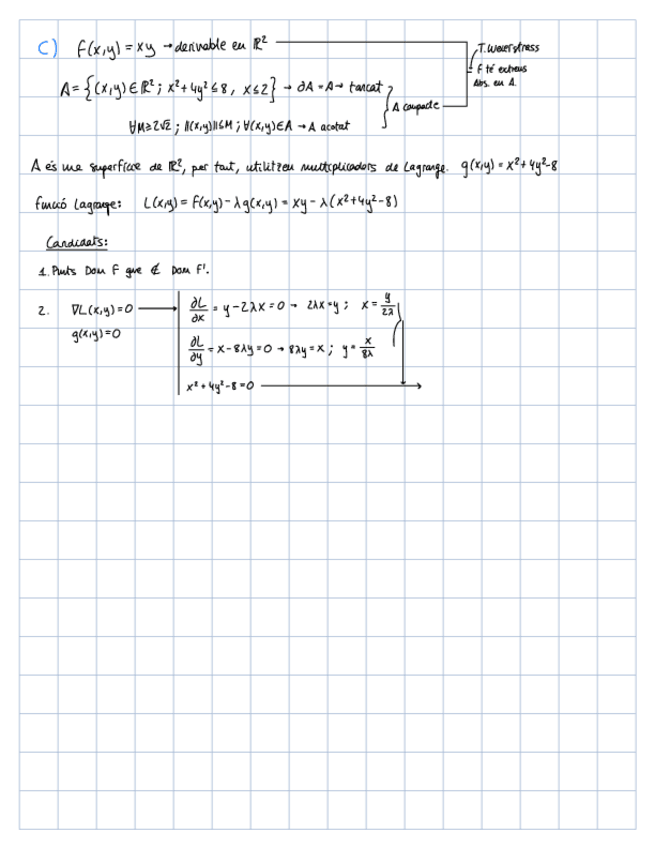 C) f(x,y) = xy → derivable en ℝ²
T. Weierstrass
f té extrems
Abs. en A.
A = {(x,y) ∈ ℝ² ; x² + 4y² ≤ 8 , x ≤ 2} → ∂A = A → tancat
A compacte
∀M ≥ 2√2 ; ||(x,y)|| ≤ M ; ∀(x,y) ∈ A → A acotat
A és una superfície de ℝ², per tant, utilitzem multiplicadors de Lagrange. g(x,y) = x² + 4y² - 8
Funció Lagrange: L(x,y) = f(x,y) - λg(x,y) = xy - λ(x² + 4y² - 8)
Candidats:
1. Punts Dom f que ∉ Dom f'.
2. ∇L(x,y) = 0 → ∂L/∂x = y - 2λx = 0 → 2λx = y ; x = y/2λ
g(x,y) = 0
∂L/∂y = x - 8λy = 0 → 8λy = x ; y = x/8λ
x² + 4y² - 8 = 0 →